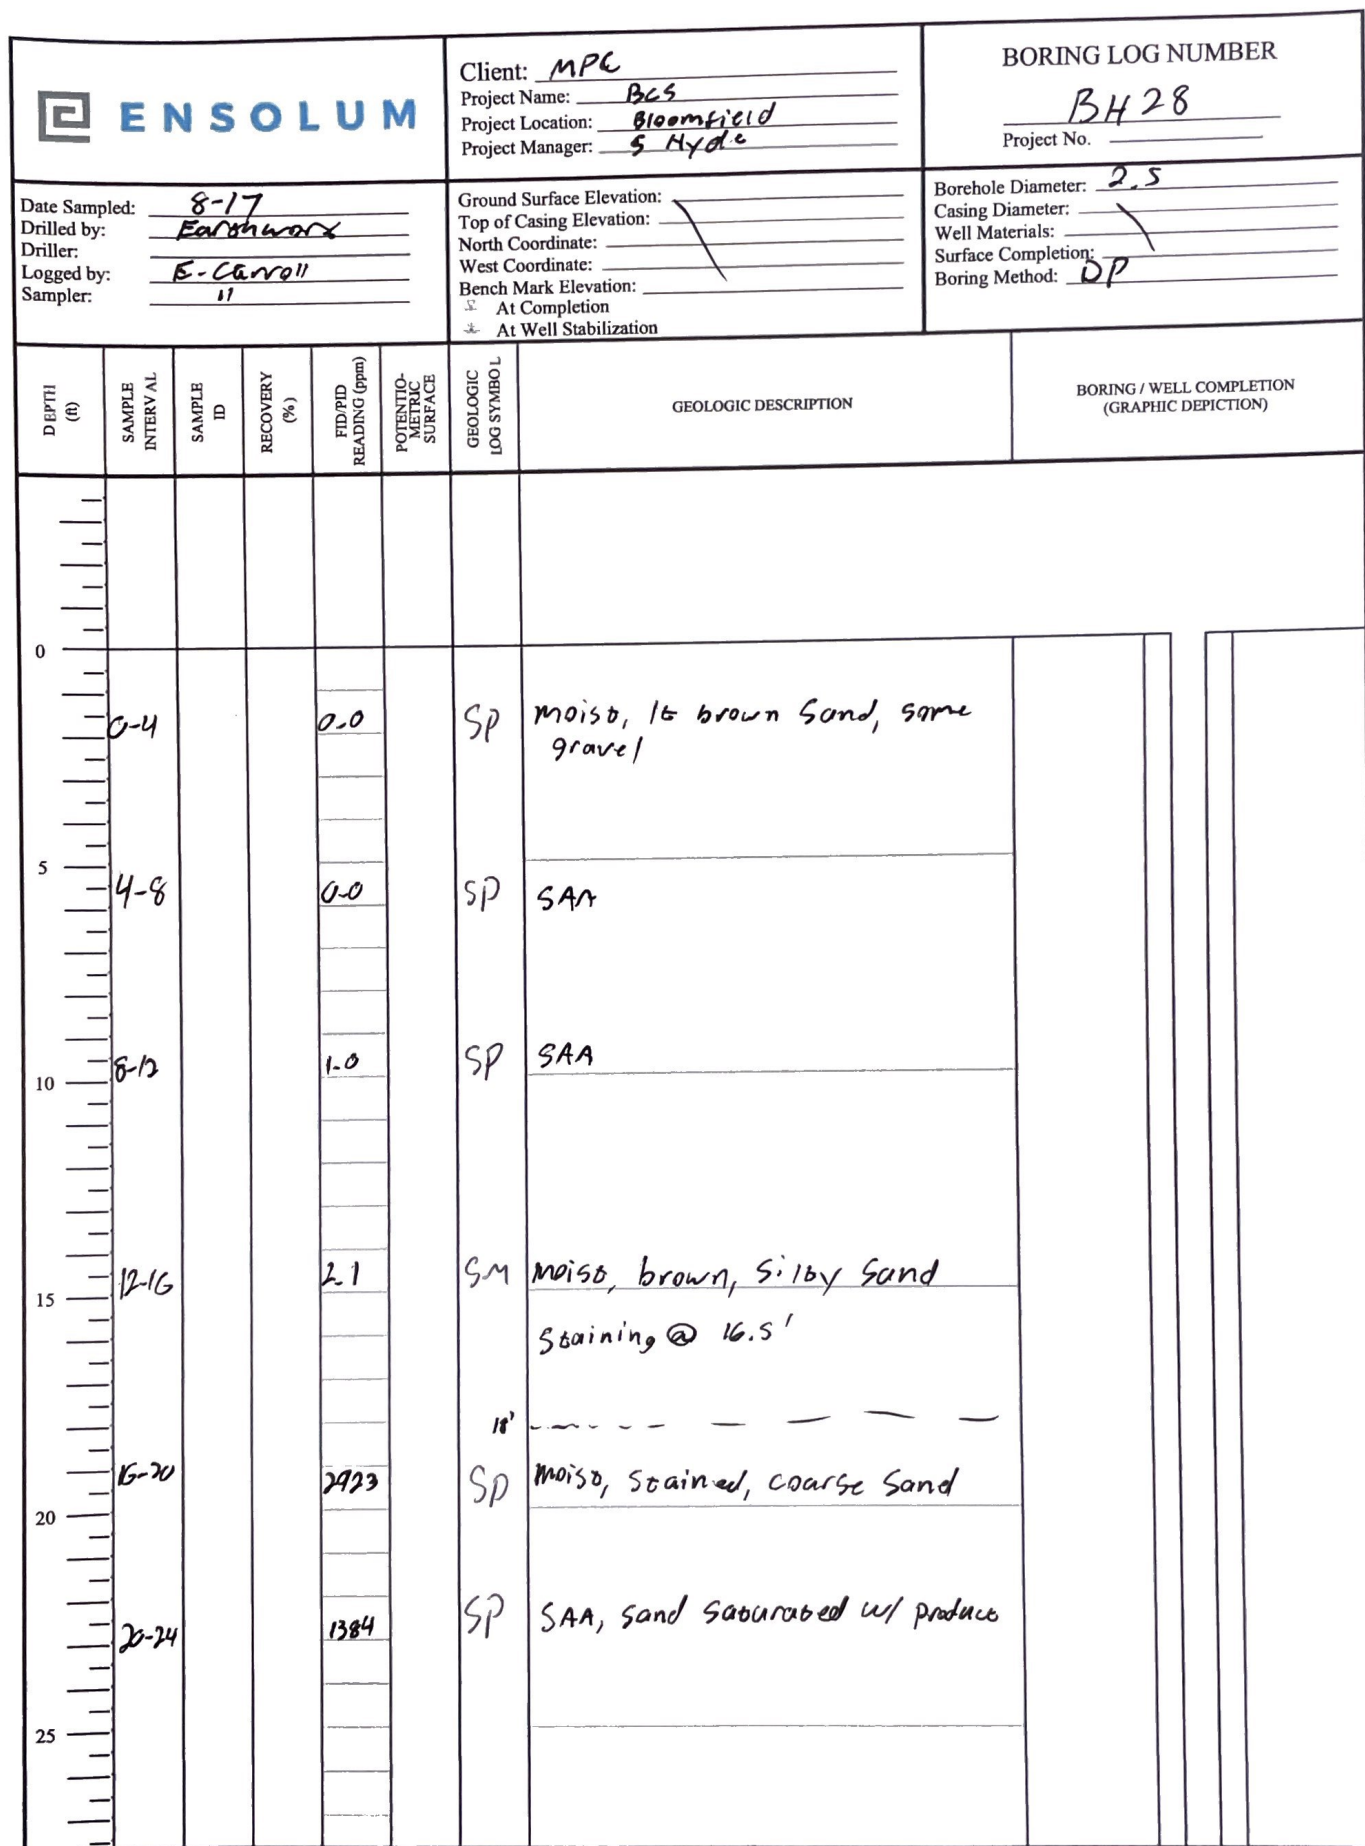 ENSOLUM
Client: MPC
Project Name: BCS
Project Location: Bloomfield
Project Manager: S Hyde
BORING LOG NUMBER
BH 28
Project No.
Date Sampled: 8-17
Drilled by: Earthworx
Driller:
Logged by: E. Carroll
Sampler: "
Ground Surface Elevation:
Top of Casing Elevation:
North Coordinate:
West Coordinate:
Bench Mark Elevation:
At Completion
At Well Stabilization
Borehole Diameter: 2.5
Casing Diameter:
Well Materials:
Surface Completion:
Boring Method: DP
DEPTH (ft)
SAMPLE INTERVAL
SAMPLE ID
RECOVERY (%)
FID/PID READING (ppm)
POTENTIO-METRIC SURFACE
GEOLOGIC LOG SYMBOL
GEOLOGIC DESCRIPTION
BORING / WELL COMPLETION
(GRAPHIC DEPICTION)
0
0-4 0.0 SP Moist, lt brown Sand, some
gravel
5
4-8 0.0 SP SAA
8-12 1.0 SP SAA
10
12-16 2.1 SM Moist, brown, Silty Sand
15
Staining @ 16.5'
18'
16-20 2923 SP Moist, Stained, coarse Sand
20
20-24 1384 SP SAA, sand saturated w/ product
25